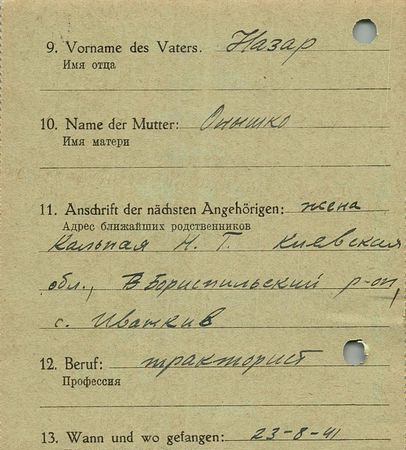 9. Vorname des Vaters. Назар
Имя отца
10. Name der Mutter: Онышко
Имя матери
11. Anschrift der nächsten Angehörigen: жена
Адрес ближайших родственников
Кальная Н. Г. Киевская
обл., Бориспильский р-он,
с. Иванкив
12. Beruf: тракторист
Профессия
13. Wann und wo gefangen: 23-8-41